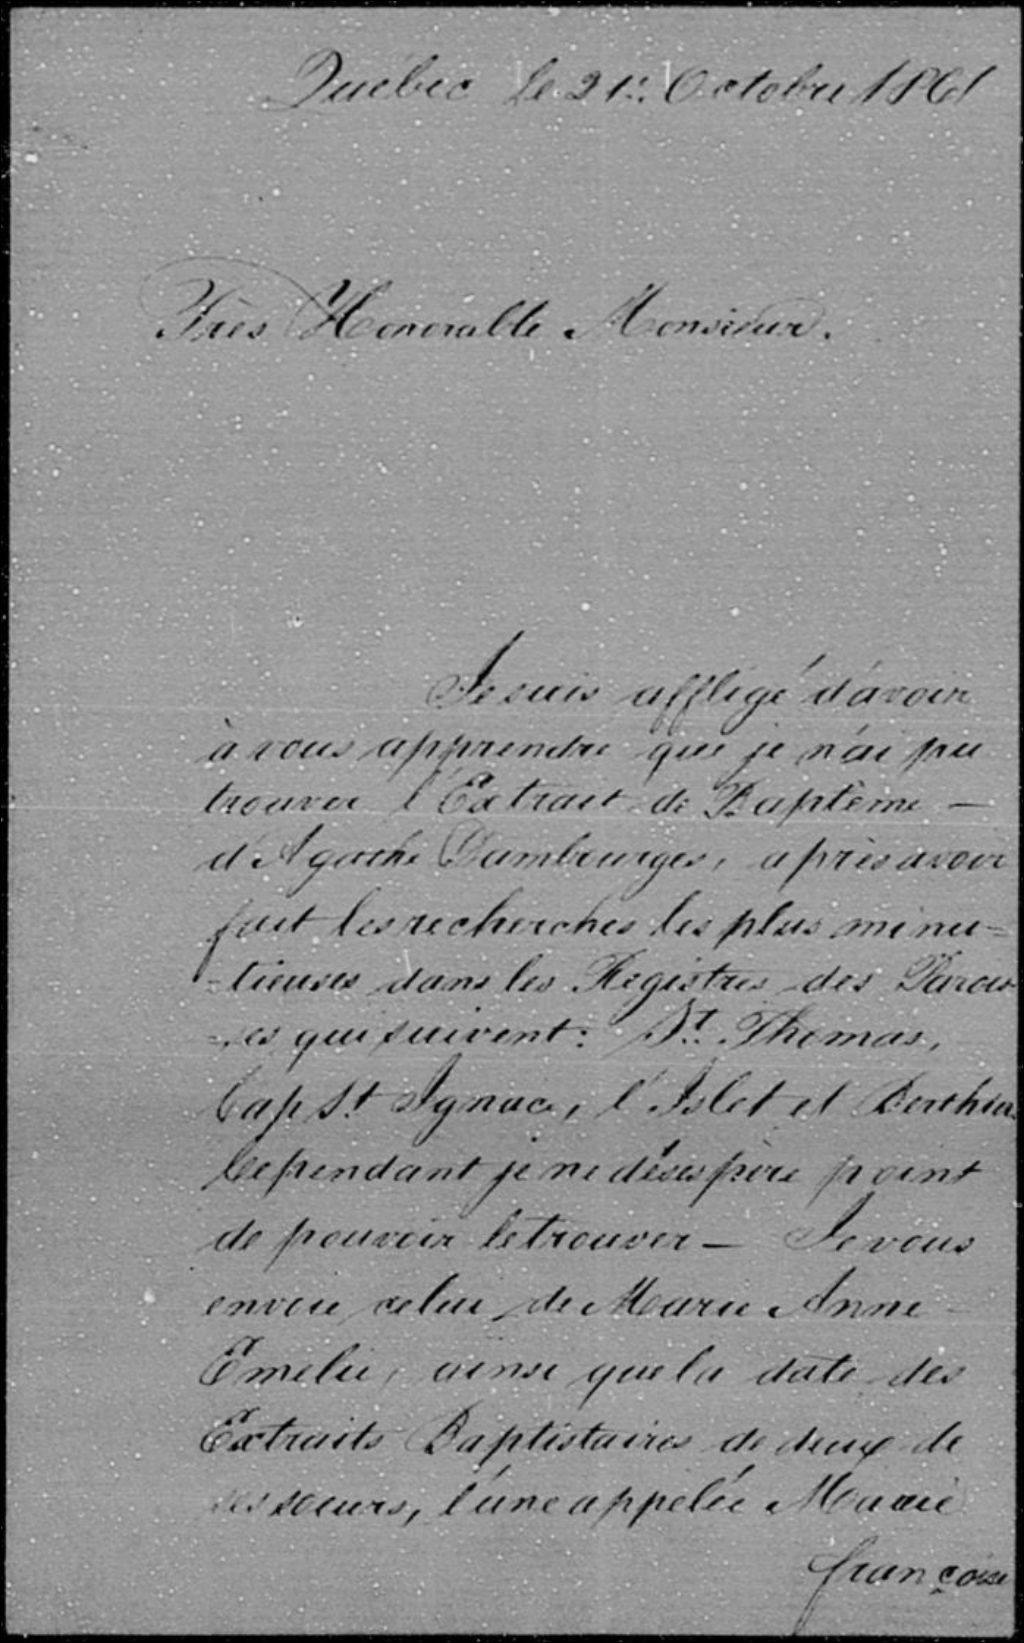 Québec le 21: Octobre 1861
Très Honorable Monsieur.
Je suis affligé d'avoir
à vous apprendre que je n'ai pu
trouver l'Extrait de Baptême —
d'Agathe Dambourges, après avoir
fait les recherches les plus minu=
=tieuses dans les Registres des Parois
=ses qui suivent: St. Thomas,
Cap St Ignace, l'Islet et Berthier.
Cependant je ne désespère point
de pouvoir le trouver — Je vous
envoie celui de Marie Anne
Emelie, ainsi que la date des
Extraits Baptistaires de deux de
ses soeurs, l'une appelée Marie
françoise